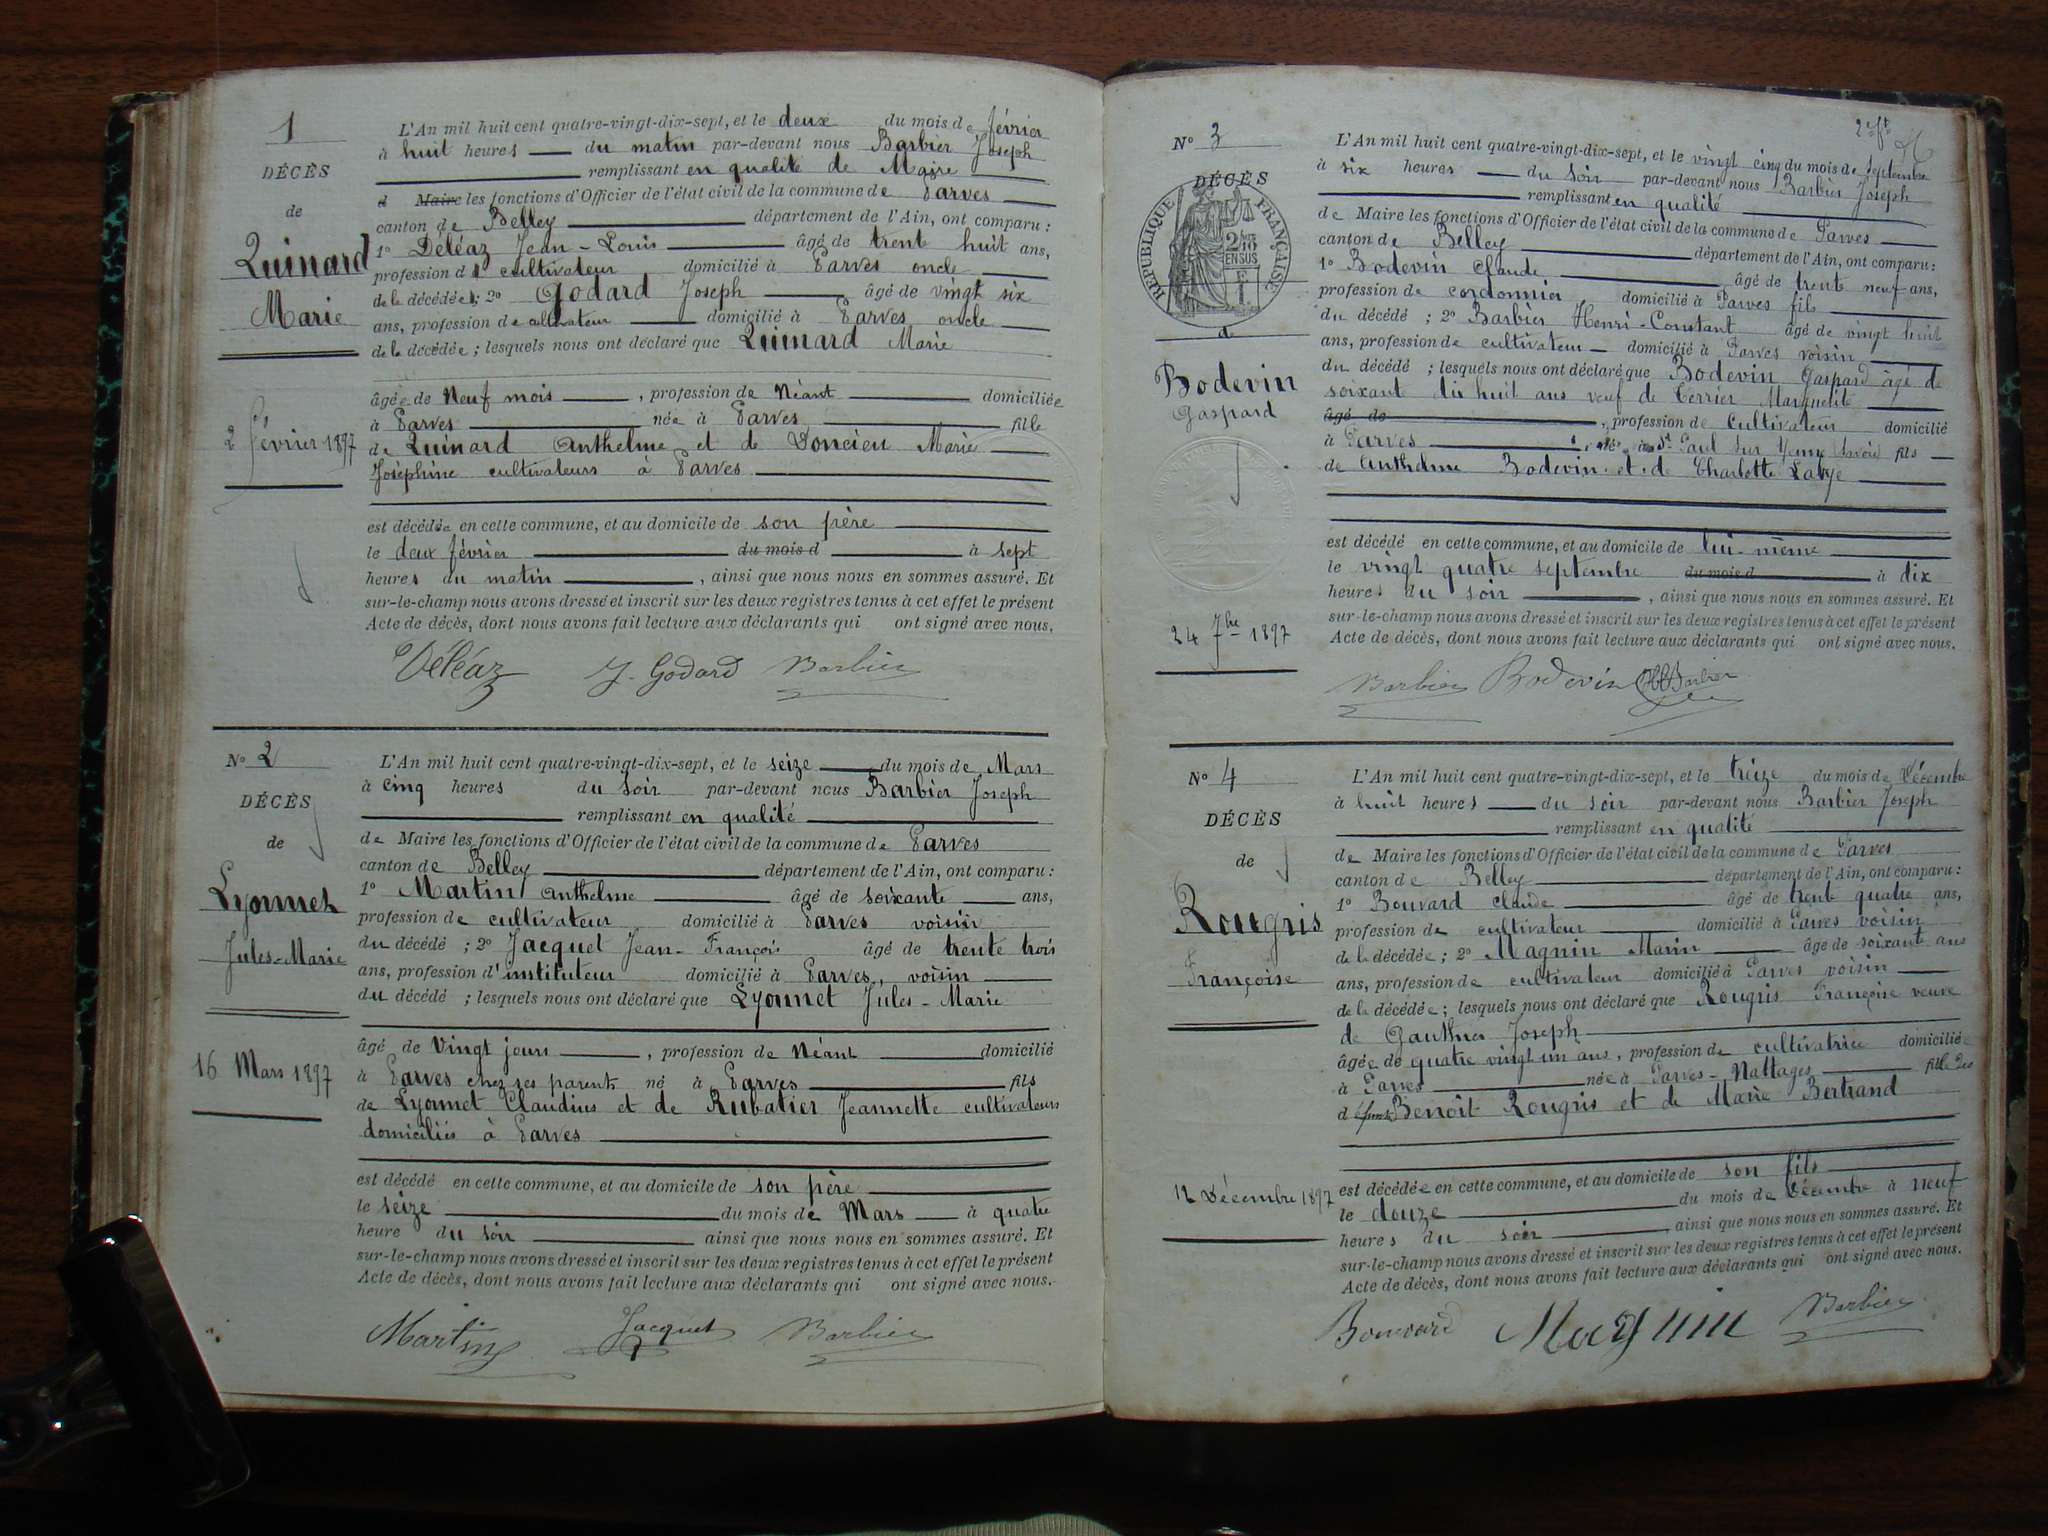 1
DÉCÈS
de
Quinard
Marie
2 février 1897
L'An mil huit cent quatre-vingt-dix-sept, et le deux du mois de février
à huit heures du matin par-devant nous Barbier Joseph
remplissant en qualité de Maire
d Maire les fonctions d'Officier de l'état civil de la commune de Parves
canton de Belley département de l'Ain, ont comparu :
1º Déléaz Jean-Louis âgé de trent huit ans,
profession de cultivateur domicilié à Parves oncle
de la décédée ; 2º Godard Joseph âgé de vingt six
ans, profession de cultivateur domicilié à Parves oncle
de la décédée ; lesquels nous ont déclaré que Quinard Marie
âgée de Neuf mois, profession de Néant domiciliée
à Parves née à Parves fille
de Quinard Anthelme et de Doncieu Marie
Joséphine cultivateurs à Parves
est décédée en cette commune, et au domicile de son père
le deux février du mois d à sept
heures du matin, ainsi que nous nous en sommes assuré. Et
sur-le-champ nous avons dressé et inscrit sur les deux registres tenus à cet effet le présent
Acte de décès, dont nous avons fait lecture aux déclarants qui ont signé avec nous.
Déléaz J. Godard Barbier
Nº 2
DÉCÈS
de
Lyonnet
Jules-Marie
16 Mars 1897
L'An mil huit cent quatre-vingt-dix-sept, et le seize du mois de Mars
à cinq heures du soir par-devant nous Barbier Joseph
remplissant en qualité
de Maire les fonctions d'Officier de l'état civil de la commune de Parves
canton de Belley département de l'Ain, ont comparu :
1º Martin Anthelme âgé de soixante ans,
profession de cultivateur domicilié à Parves voisin
du décédé ; 2º Jacquet Jean-François âgé de trente trois
ans, profession d'instituteur domicilié à Parves, voisin
du décédé ; lesquels nous ont déclaré que Lyonnet Jules-Marie
âgé de Vingt jours, profession de Néant domicilié
à Parves chez ses parents né à Parves fils
de Lyonnet Claudius et de Rubatier Jeannette cultivateurs
domiciliés à Parves
est décédé en cette commune, et au domicile de son père
le seize du mois de Mars à quatre
heure du soir ainsi que nous nous en sommes assuré. Et
sur-le-champ nous avons dressé et inscrit sur les deux registres tenus à cet effet le présent
Acte de décès, dont nous avons fait lecture aux déclarants qui ont signé avec nous.
Martin Jacquet Barbier
2e ft
Nº 3
DÉCÈS
RÉPUBLIQUE FRANÇAISE
2/10 EN SUS
d
Bodevin
Gaspard
24 7bre 1897
L'An mil huit cent quatre-vingt-dix-sept, et le vingt cinq du mois de septembre
à six heures du soir par-devant nous Barbier Joseph
remplissant en qualité
de Maire les fonctions d'Officier de l'état civil de la commune de Parves
canton de Belley département de l'Ain, ont comparu :
1º Bodevin Claude âgé de trente neuf ans,
profession de cordonnier domicilié à Parves fils
du décédé ; 2º Barbier Henri-Constant âgé de vingt huit
ans, profession de cultivateur domicilié à Parves voisin
du décédé ; lesquels nous ont déclaré que Bodevin Gaspard âgé de
soixante dix huit ans veuf de Terrier Marguerite
âgé de, profession de Cultivateur domicilié
à Parves St Paul sur Yenne (Savoie) fils
de Anthelme Bodevin et de Charlotte
est décédé en cette commune, et au domicile de lui-même
le vingt quatre septembre du mois d à dix
heures du soir, ainsi que nous nous en sommes assuré. Et
sur-le-champ nous avons dressé et inscrit sur les deux registres tenus à cet effet le présent
Acte de décès, dont nous avons fait lecture aux déclarants qui ont signé avec nous.
Barbier Bodevin Barbier
Nº 4
DÉCÈS
de
Rougris
Françoise
12 Décembre 1897
L'An mil huit cent quatre-vingt-dix-sept, et le treize du mois de Décembre
à huit heures du soir par-devant nous Barbier Joseph
remplissant en qualité
de Maire les fonctions d'Officier de l'état civil de la commune de Parves
canton de Belley département de l'Ain, ont comparu :
1º Bouvard Claude âgé de trente quatre ans,
profession de cultivateur domicilié à Parves voisin
de la décédée ; 2º Magnin Marin âgé de soixante ans
ans, profession de cultivateur domicilié à Parves voisin
de la décédée ; lesquels nous ont déclaré que Rougris Françoise veuve
de Gauthier Joseph
âgée de quatre vingt un ans, profession de cultivatrice domiciliée
à Parves née à Parves-Nattages fille des
d Benoît Rougris et de Marie Bertrand
est décédée en cette commune, et au domicile de son fils
le douze du mois de Décembre à neuf
heures du soir, ainsi que nous nous en sommes assuré. Et
sur-le-champ nous avons dressé et inscrit sur les deux registres tenus à cet effet le présent
Acte de décès, dont nous avons fait lecture aux déclarants qui ont signé avec nous.
Bouvard Magnin Barbier